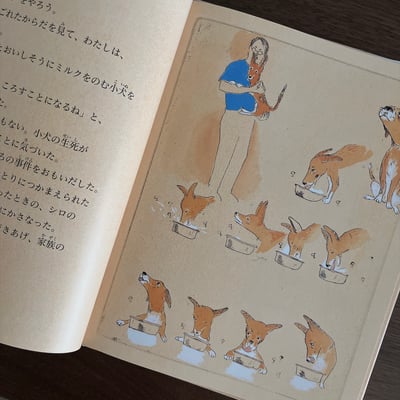 をやろう。
ごれたからだを見て、わたしは、
とおいしそうにミルクをのむ小犬を
ころすことになるね」と、
た。
もない。小犬の生死が
ことに気づいた。
るの事件をおもいだした。
とりにつかまえられた
ったときの、シロの
にかさなった。
きあげ、家族の